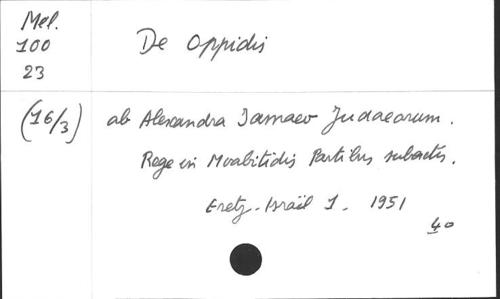 Mel.
100
23
De Oppidis
(16/3)
ab Alexandra Iamaeo Judaeorum.
Rege in Moabitidis Partibus subactis.
Eretz-Israël 1. 1951
40